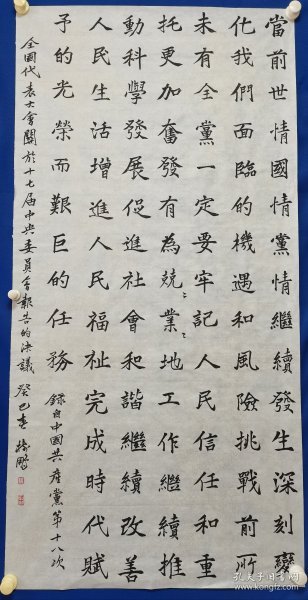 當前世情國情黨情繼續發生深刻變
化我們面臨的機遇和風險挑戰前所
未有全黨一定要牢記人民信任和重
托更加奮發有為兢〻業〻地工作繼續推
動科學發展促進社會和諧繼續改善
人民生活增進人民福祉完成時代賦
予的光榮而艱巨的任務
錄自中國共產黨第十八次
全國代表大會關於十七屆中央委員會報告的決議 癸巳春